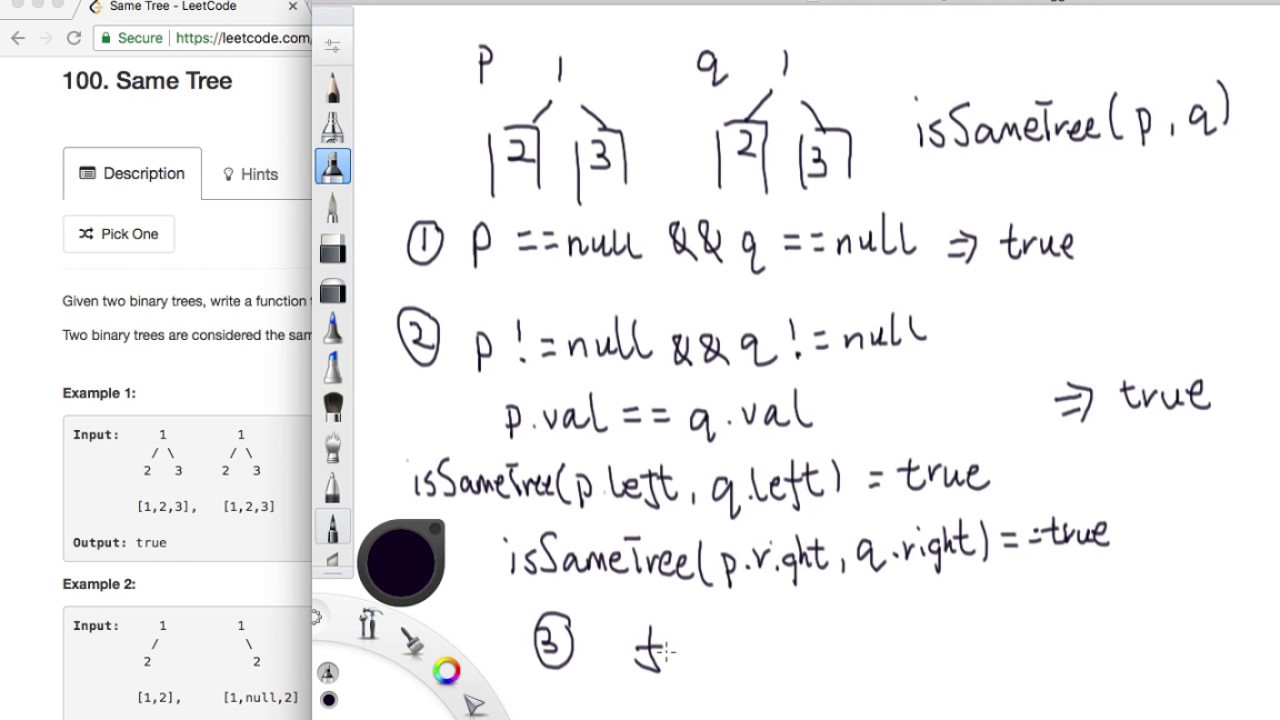 Same Tree - LeetCode
Secure https://leetcode.com/
100. Same Tree
Description Hints
Pick One
Given two binary trees, write a function
Two binary trees are considered the sam
Example 1:
Input: 1 1
/ \ / \
2 3 2 3
[1,2,3], [1,2,3]
Output: true
Example 2:
Input: 1 1
/ \
2 2
[1,2], [1,null,2]
p 1 q 1
2 3 2 3
isSameTree(p, q)
① p ==null && q ==null => true
② p !=null && q !=null
p.val == q.val => true
isSameTree(p.left, q.left) = true
isSameTree(p.right, q.right) ==true
③